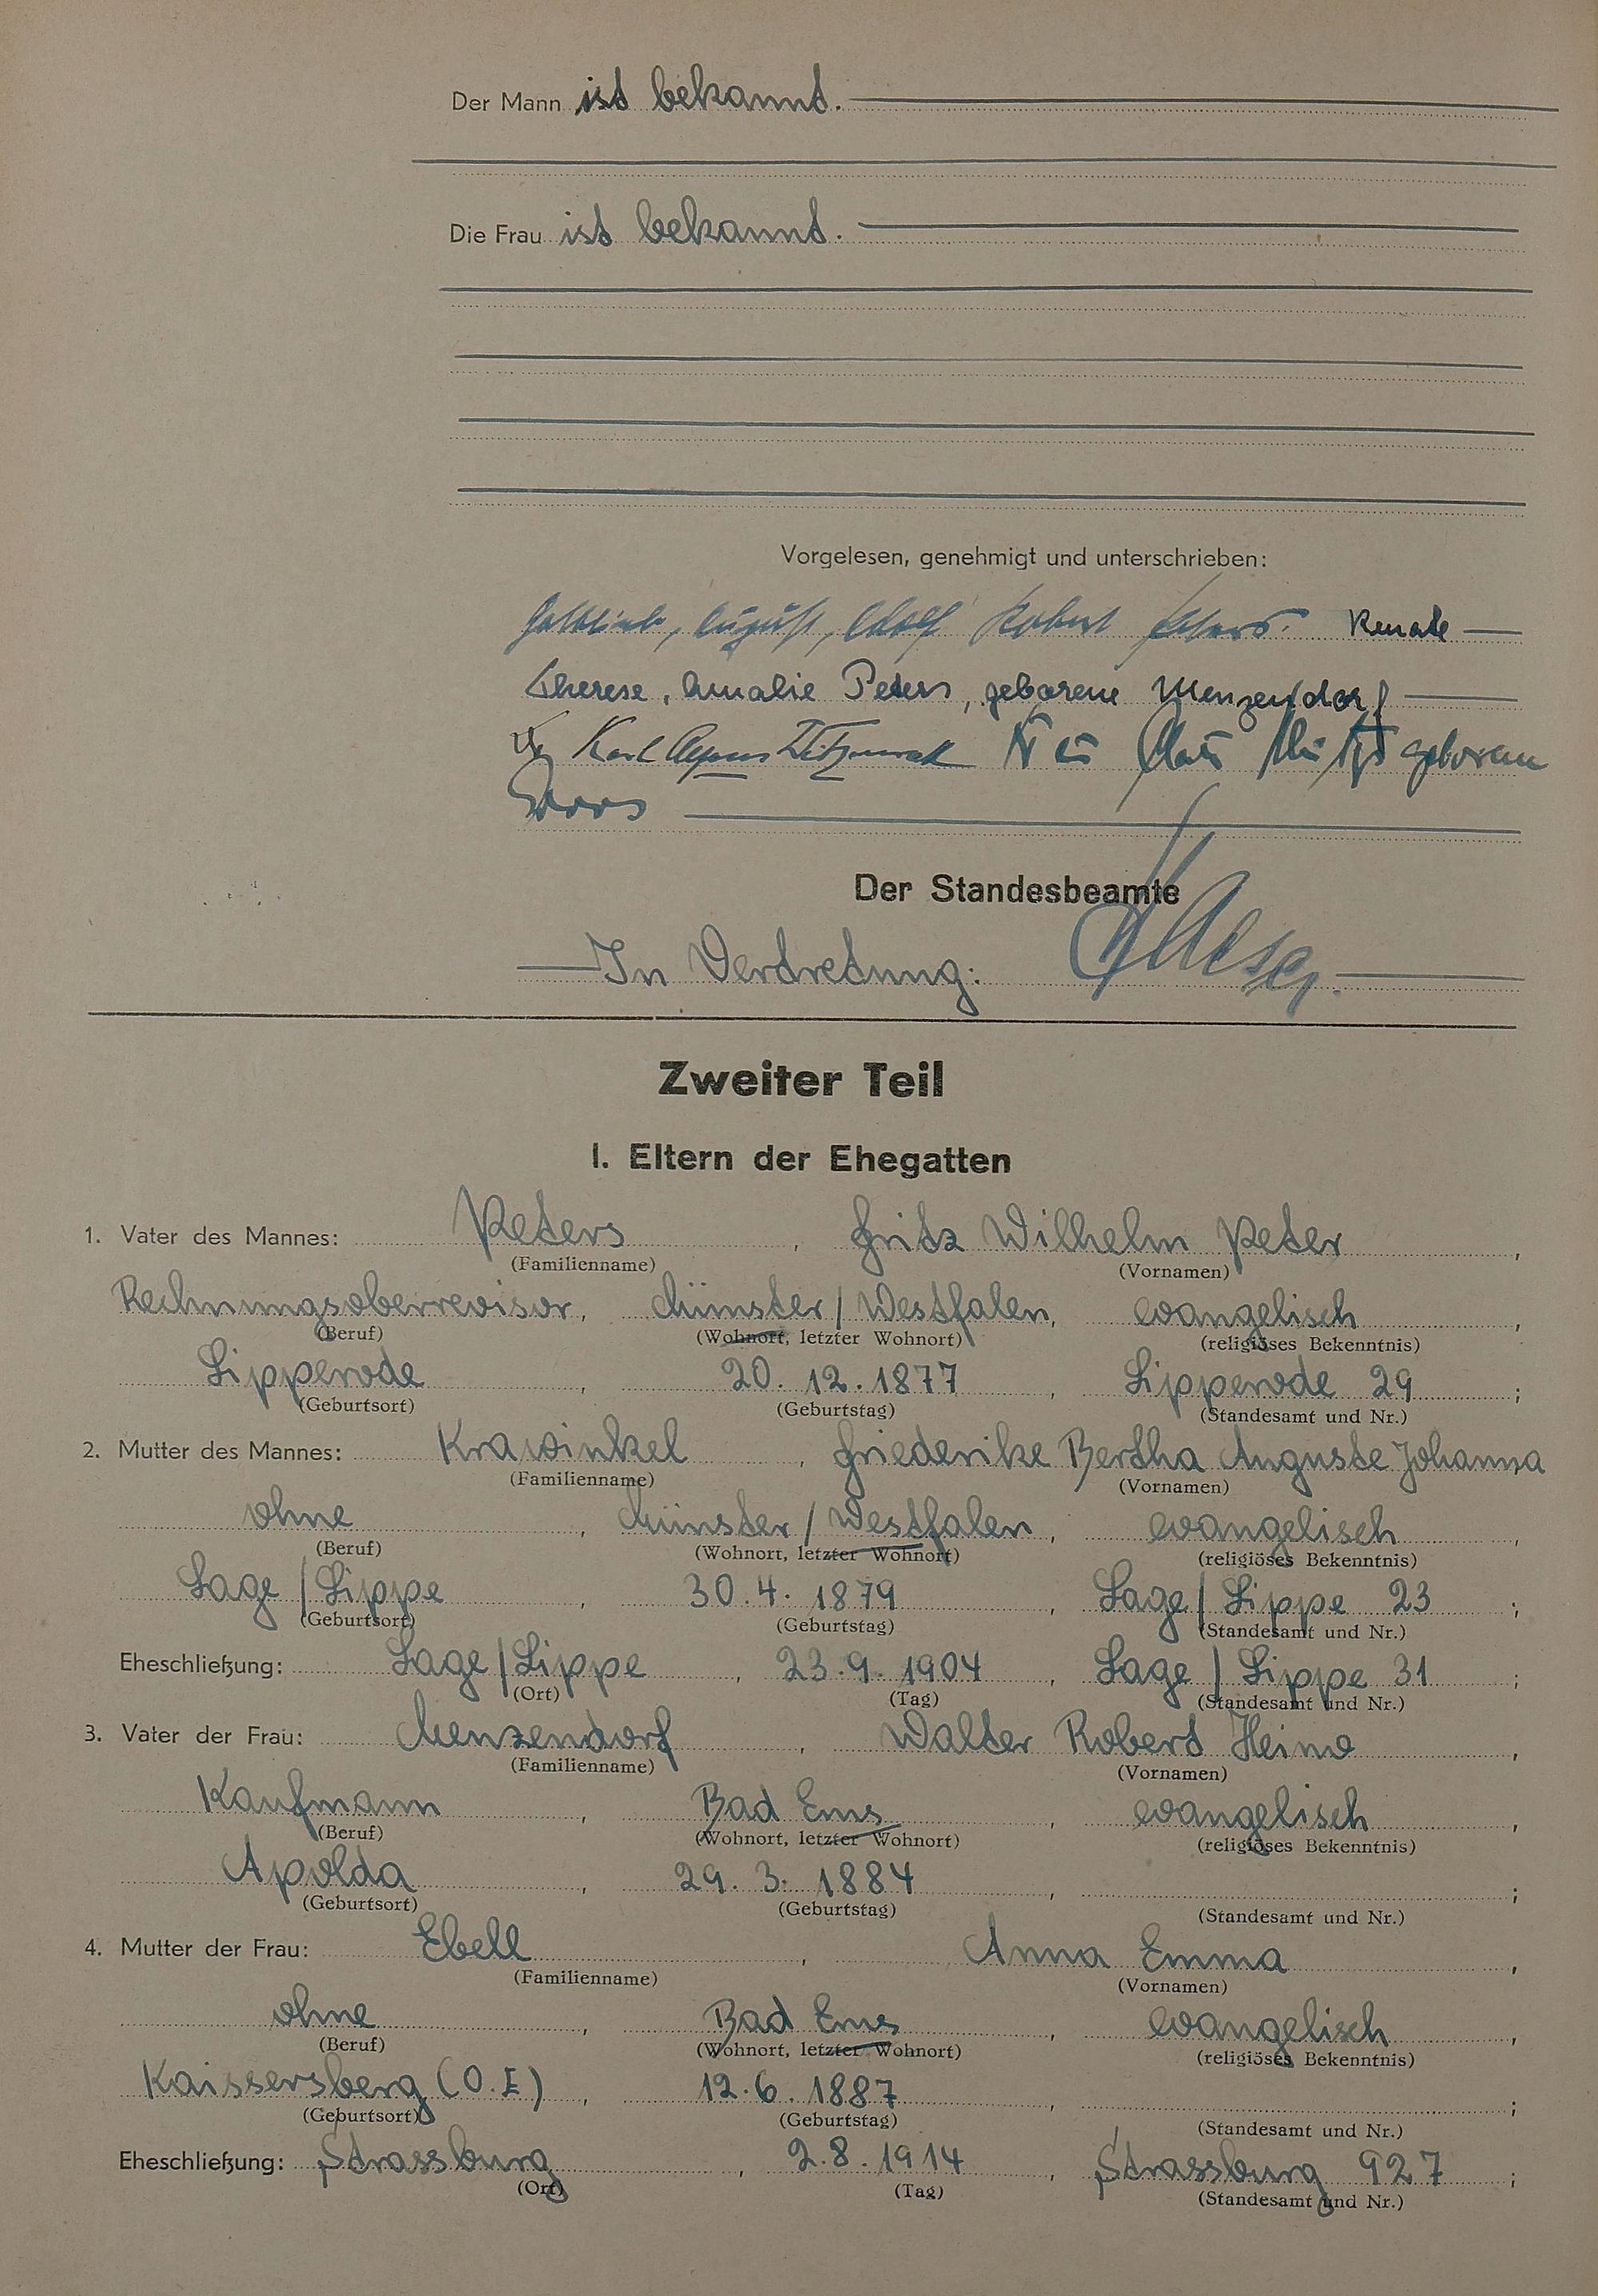 Der Mann ist bekannt.
Die Frau ist bekannt.
Vorgelesen, genehmigt und unterschrieben:
Gottlieb, August, Adolf Robert Peters. Renate
Therese, Amalie Peters, geborene Menzendorf
Karl geborene
Der Standesbeamte
In Vertretung:
Zweiter Teil
I. Eltern der Ehegatten
1. Vater des Mannes: Peters, Fritz Wilhelm Peter,
(Familienname) (Vornamen)
Rechnungsoberrevisor, Münster/Westfalen, evangelisch,
(Beruf) (Wohnort, letzter Wohnort) (religiöses Bekenntnis)
Lipperode, 20.12.1877, Lipperode 29;
(Geburtsort) (Geburtstag) (Standesamt und Nr.)
2. Mutter des Mannes: Krawinkel, Friederike Bertha Auguste Johanna
(Familienname) (Vornamen)
ohne, Münster/Westfalen, evangelisch,
(Beruf) (Wohnort, letzter Wohnort) (religiöses Bekenntnis)
Lage/Lippe, 30.4.1879, Lage/Lippe 23;
(Geburtsort) (Geburtstag) (Standesamt und Nr.)
Eheschließung: Lage/Lippe, 23.9.1904, Lage/Lippe 31;
(Ort) (Tag) (Standesamt und Nr.)
3. Vater der Frau: Menzendorf, Walter Robert Heino,
(Familienname) (Vornamen)
Kaufmann, Bad Ems, evangelisch,
(Beruf) (Wohnort, letzter Wohnort) (religiöses Bekenntnis)
Apolda, 29.3.1884,;
(Geburtsort) (Geburtstag) (Standesamt und Nr.)
4. Mutter der Frau: Ebell, Anna Emma,
(Familienname) (Vornamen)
ohne, Bad Ems, evangelisch,
(Beruf) (Wohnort, letzter Wohnort) (religiöses Bekenntnis)
Kaissersberg (O.E), 12.6.1887,;
(Geburtsort) (Geburtstag) (Standesamt und Nr.)
Eheschließung: Strassburg, 2.8.1914, Strassburg 927;
(Ort) (Tag) (Standesamt und Nr.)